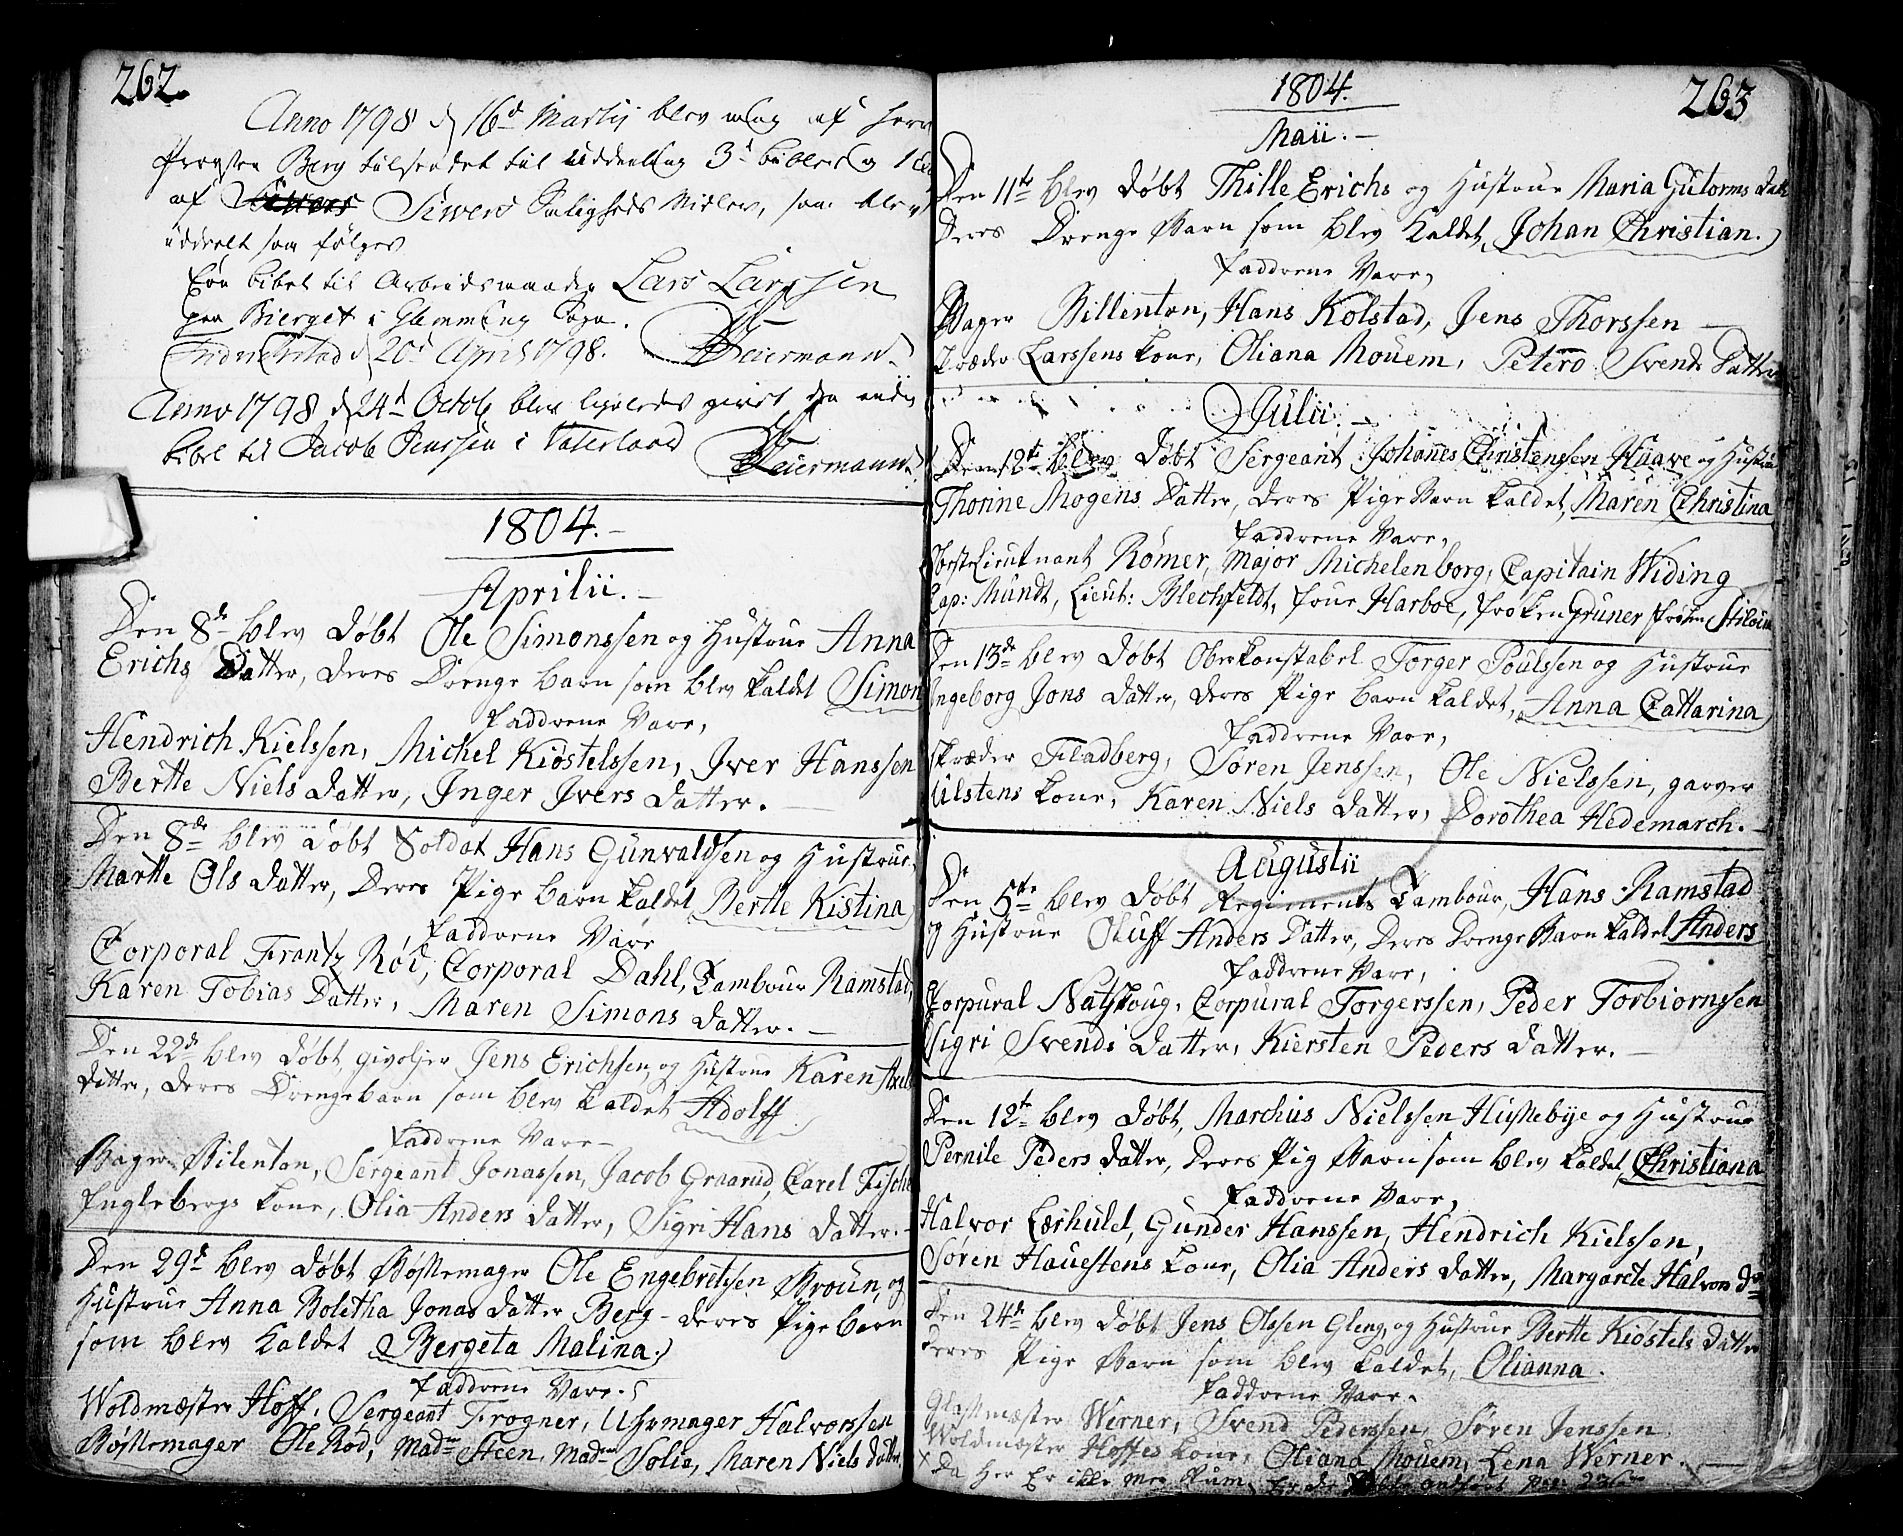 262.
Anno 1798 d 16d Martij blev mig af Herr
Provsten Berg tilsendet til uddeeling 3d bibler og 1
af Siwers Siwers Saligheds Midler, som blev
uddeelt som følger
Een bibel til Arbeidsmanden Lars Larssen
paa Bierget i Glemming Sogn.
Friderichstad d 20d April 1798. Beiermann
Anno 1798 d 24d Octob blev ligeledes givet en
bibel til Jacob Jenssen i Vaterland Beiermann
1804.
Aprilii.
Den 8de blev Døbt Ole Simonssen og Hustrue Anna
Erichs Datter, Deres Drenge barn som blev kaldet Simon
Faddrene Vare,
Hendrich Kielssen, Michel Kiøstelssen, Iver Hanssen
Bertte Niels Datter, Inger Ivers Datter.
Den 8de blev Døbt Soldat Hans Gunvaldsen og Hustrue,
Martte Ols Datter, Deres Pige barn kaldet Bertte Kistina
Faddrene Vare
Corporal Frantz Rød, Corporal Dahl, Tambour Ramstad,
Karen Tobias Datter, Maren Simons Datter.
Den 22de blev Døbt, givoljer Jens Erichsen, og Hustrue Karen Axels
Datter, Deres Drengebarn som blev kaldet Adolff
Faddrene Vare
Bager Bilenton, Sergeant Jonassen, Jacob Graarud, Carel Fischer
Englebergs kone, Olia Anders Datter, Sigri Hans Datter.
Den 29de blev Døbt Bøssemager Ole Engebretssen Broun, og
Hustrue Anna Boletha Jonas Datter Berg - deres Pige barn
som blev kaldet Bergeta Malina.
Faddrene Vare.
Woldmæster Hoff. Sergeant Frogner, Uhrmager Halvorssen
Bøssemager Ole Rød, Madm Steen, Madm Solie, Maren Niels Datter,
263
1804.
Maii.
Den 11te blev Døbt Thille Erichs og Hustrue Maria Gutorms Dat
Deres Drenge Barn som blev kaldet, Johan Christian.
Faddrene Vare,
Bager Billenton, Hans Kolstad, Jens Thorssen
Skræder Larssens kone, Oliana Mouem, Petero Svends Datter
Julii.
Den 12te blev Døbt Sergeant Johanes Christenssen Huave og Hustrue
Thorine Mogens Datter, deres Pige Barn kaldet, Maren Christina
Faddrene Vare,
Obrstelieutnant Römer, Major Michelenborg, Capitain Widing
Cap: Mundt, Lieut: Blechfeldt, Frue Harboe, Frøken Gruner Frøken
Den 13de blev Døbt Oberkonstabel Torger Poulssen og Hustrue
Ingeborg Jons Datter, deres Pige barn kaldet, Anna Cattarina
Faddrene Vare,
Skræder Fladberg, Søren Jenssen, Ole Nielssen, garver
Ulstens kone, Karen Niels Datter, Dorothea Hedemarch.
Augustii
Den 5te blev Døbt Regiments Tambour, Hans Ramstad
og Hustrue Oluff Anders Datter, Deres Drenge Barn kaldet Anders
Faddrene Vare,
Corpural Natskoug, Corpural Torgerssen, Peder Torbiornssen
Sigri Svends Datter, Kiersten Peders Datter.
Den 12te blev Døbt, Marchus Nielssen Hussebye og Hustrue
Pernile Peders Datter, Deres Pig Barn som blev kaldet, Christiana
Faddrene Vare,
Halvor Lærhuld, Gunder Hanssen, Hendrich Kielssen,
Søren Hauestens kone, Olia Anders Datter, Margarete Halvors Dr
Den 24de blev Døbt Jens Olssen Gleng, og Hustrue Bertte Kiøstels Datter
Deres Pige Barn som blev kaldet, Olianna.
Faddrene Vare.
Glassmæster Werner, Svend Pederssen, Søren Jenssen
Woldmæster Hoffes kone, Oliana Mouem, Lena Werner.
Da Her Er ikke mer Rum,